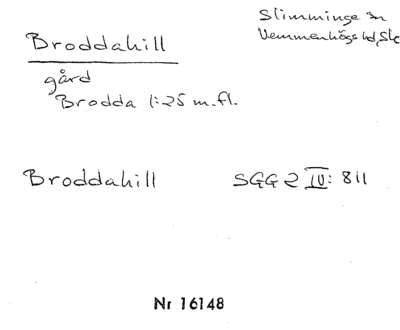 Slimminge sn
Vemmenhögs hd, Sk
Broddahill
gård
Brodda 1:25 m.fl.
Broddahill SGG 2 IV: 811
Nr 16148